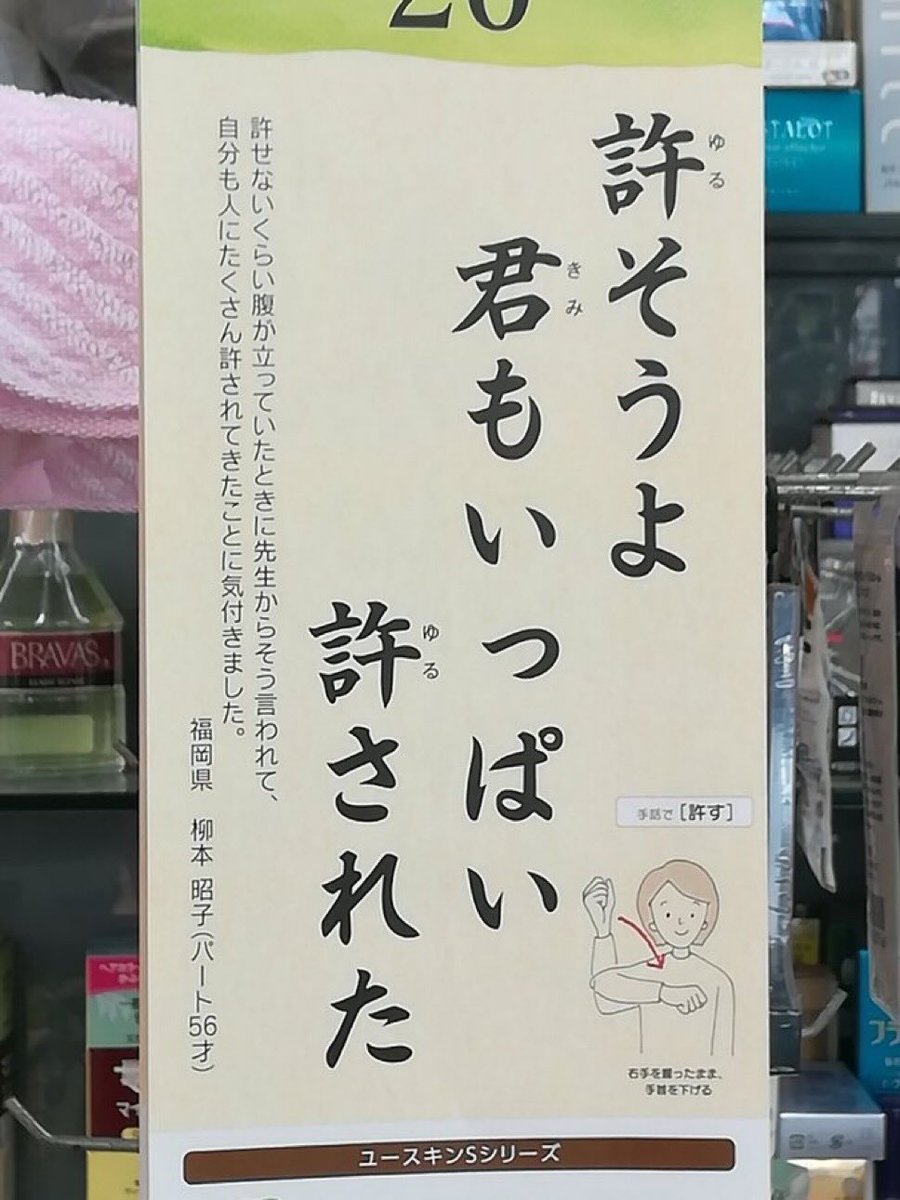 26
許そうよ
ゆる
君もいっぱい
きみ
許された
ゆる
許せないくらい腹が立っていたときに先生からそう言われて、
自分も人にたくさん許されてきたことに気付きました。
福岡県 柳本 昭子(パート56才)
手話で[許す]
右手を握ったまま、
手首を下げる
ユースキンSシリーズ
BRAVAS